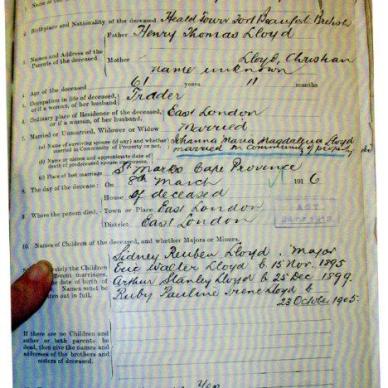 Birthplace and Nationality of the deceased Heald Town Fort Beaufort British
Father Henry Thomas Lloyd
3. Names and Address of the
Parents of the deceased
Mother Lloyd, Christian
name unknown
4. Age of the deceased 61 years 11 months
5. Occupation in life of deceased,
or if a woman, of her husband
Trader
6. Ordinary place of Residence of the deceased,
or if a woman, of her husband
East London
7. Married or Unmarried, Widower or Widow Married
(a) Name of surviving spouse (if any) and whether
married in Community of Property or not
Johanna Maria Magdalena Lloyd
married in Community of property
(b) Name or names and approximate date of
death of predeceased spouse
(c) Place of last marriage
St Marks Cape Province
8. The day of the decease: On March 1916
House of deceased
9. Where the person died, Town or Place East London
District East London
10. Names of Children of the deceased, and whether Majors or Minors.
Sidney Reuben Lloyd Major
Eric Walter Lloyd b 15 Nov. 1895
Arthur Stanley Lloyd b 25 Dec 1899.
Ruby Pauline Irene Lloyd b
23 October 1905.
the Children
marriages,
the date of birth of
Names must be
out in full.
If there are no Children and
either or both parents be
dead, then give the names and
addresses of the brothers and
sisters of deceased.
Yes